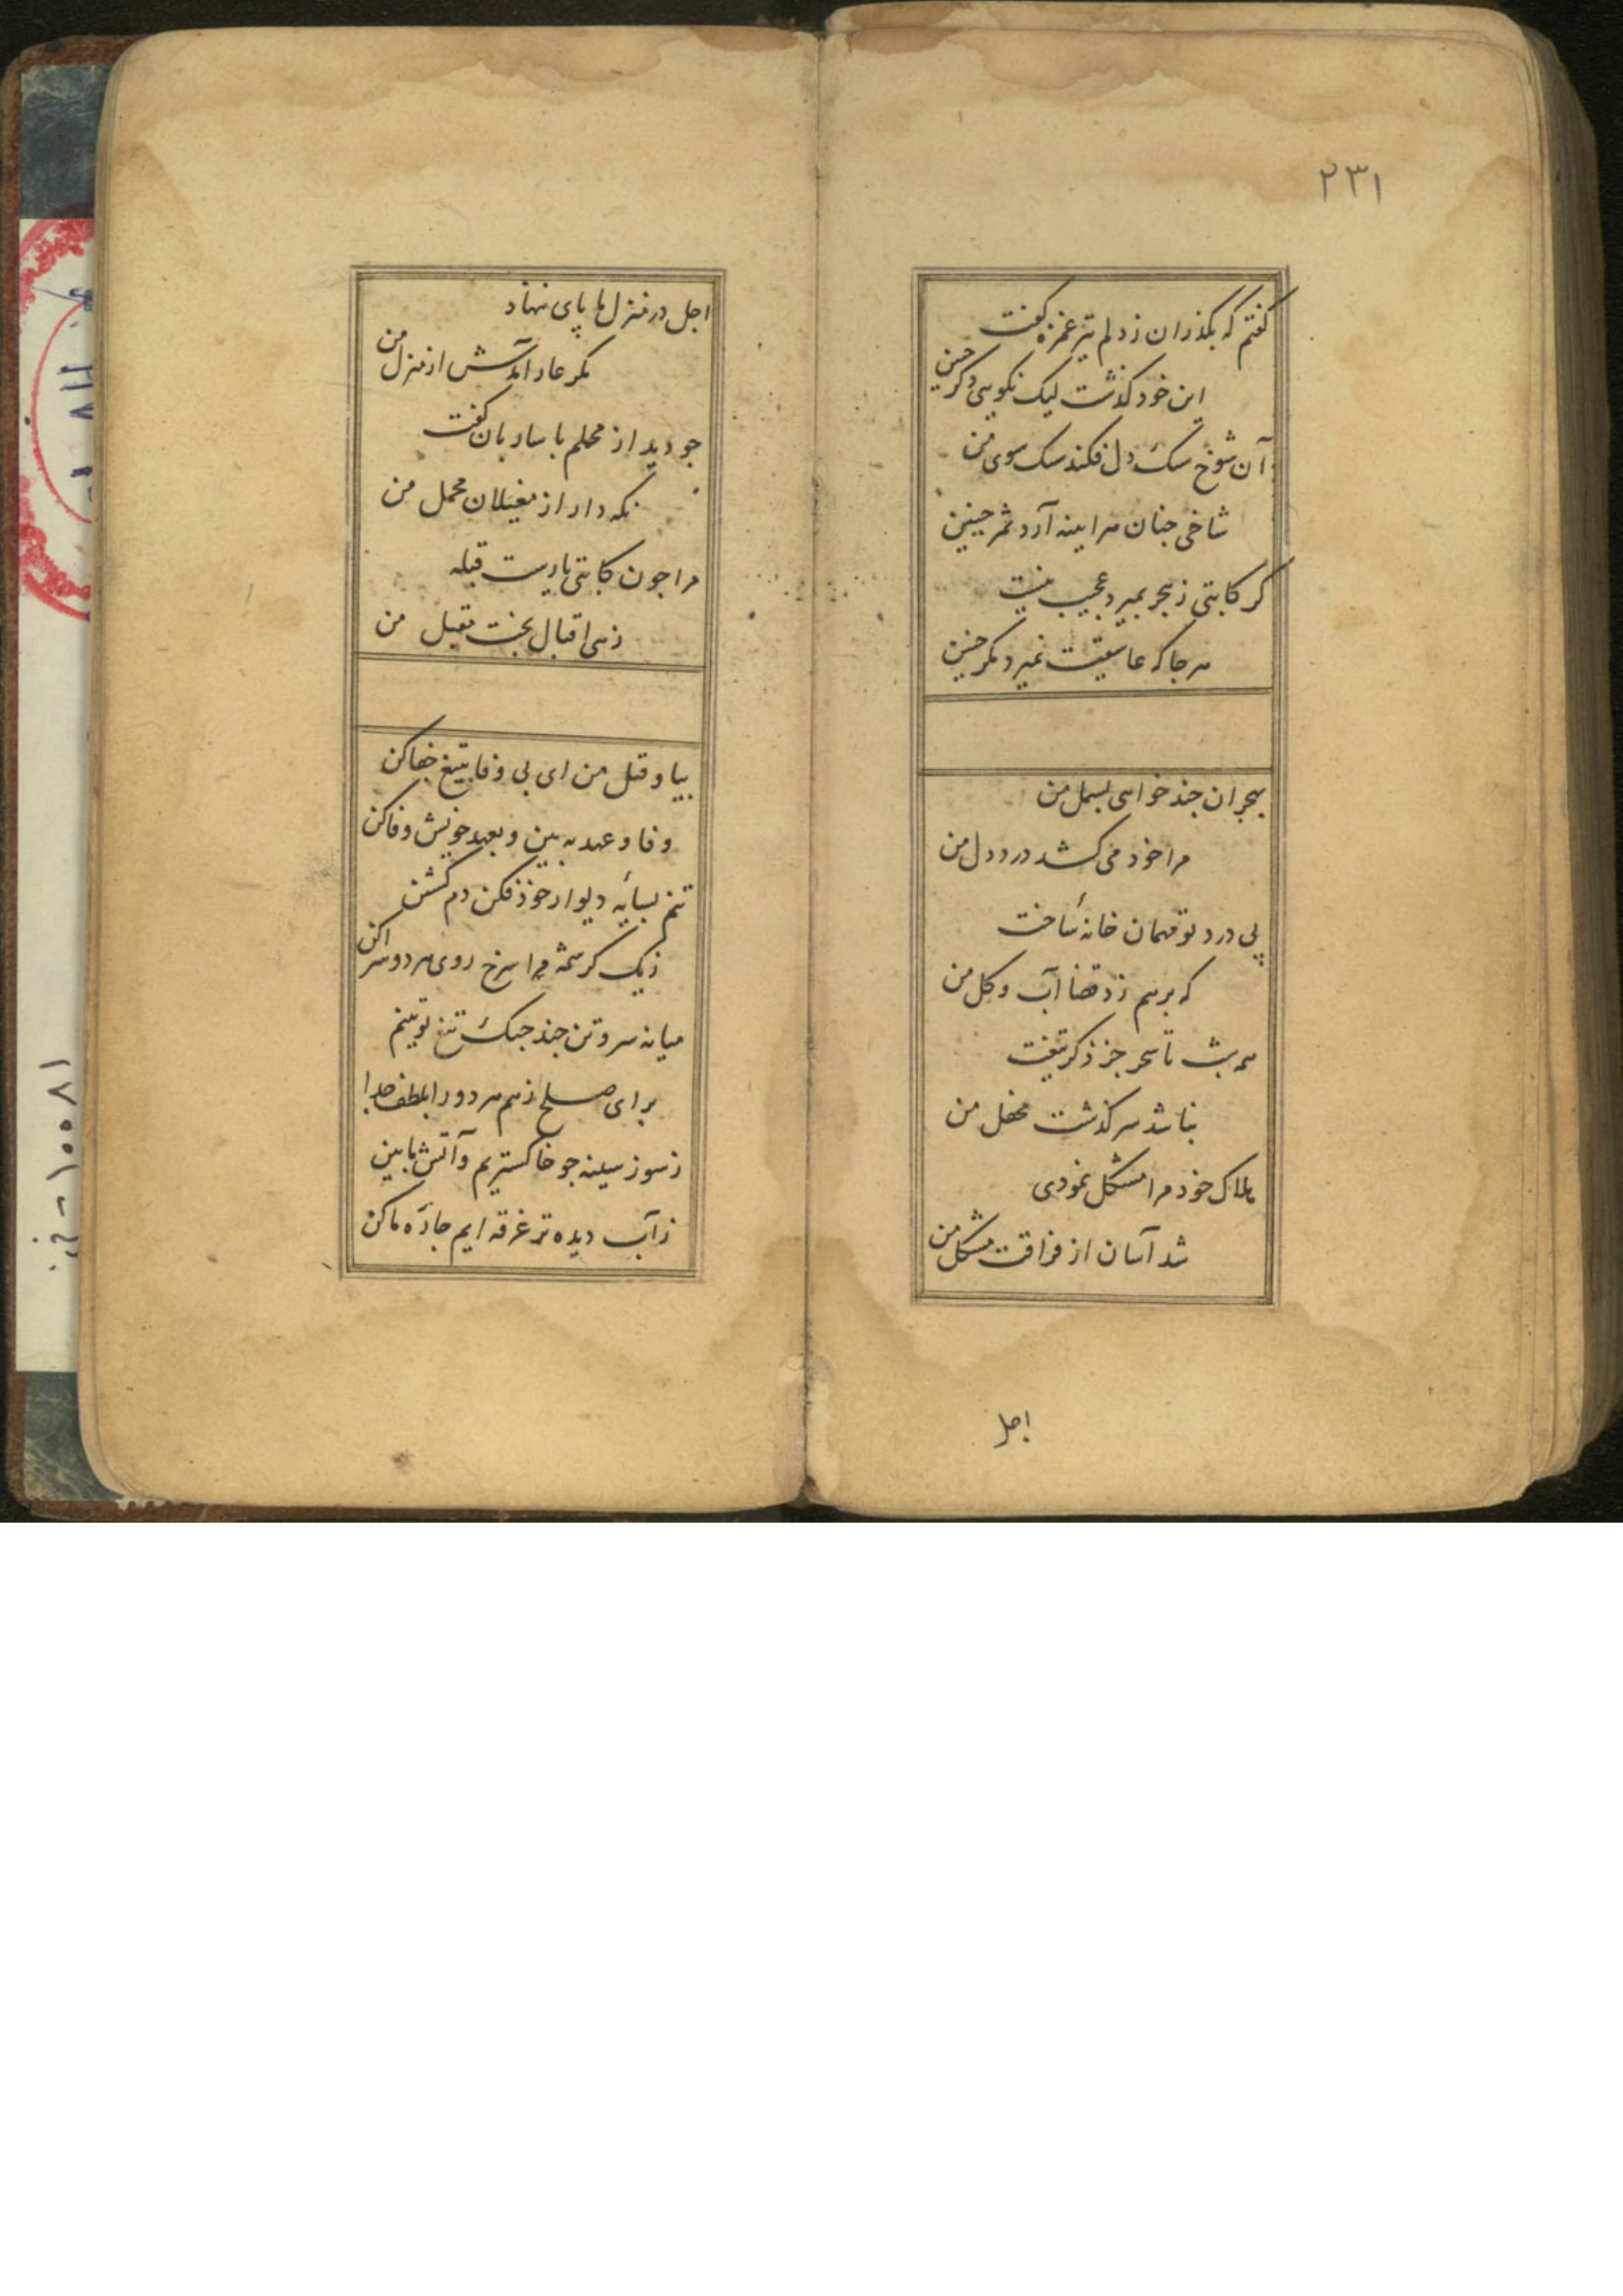 ۲۳۱
کفتم که بکذران ز دلم تیر غمزه کفت
این خود کذشت لیک نکویی دکر چنین
آن شوخ سنک دل فکند سنک سوی من
شاخی جنان هرآینه آرد ثمر جنین
کر کاتبی ز هجر بمیرد عجیب نیست
هر جا که عاشقیست نمیرد مکر جنین
بهجران جند خواهی بسمل من
مرا خود می کشد درد دل من
پی درد تو مهمان خانهٔ ساخت
که برهم زد قضا آب و کل من
همه شب تا سحر جز ذکر تیغت
نباشد سرکذشت محفل من
هلاک خود مرا مشکل نمودی
شد آسان از فراقت مشکل من
اجل
اجل در منزل ما پای ننهاد
مکر عار آمدش از منزل من
جو دید از محلم با ساربان کفت
نکه دار از مغیلان محمل من
مرا جون کاتبی یارست قبله
زهی اقبال بخت مقبل من
بیا و قتل من ای بی وفا بتیغ جفا کن
وفا و عهد به بین و بعهد خویش وفا کن
تنم بسایهٔ دیوار خود فکن دم کشتن
ز یک کرشمه مرا سرخ روی هر دو سرا کن
میانه سر و تن جند جنک تیغ تو بینم
برای صلح ز هم هر دو را بلطف جدا
ز سوز سینه جو خاکستریم و آتش ما بین
ز آب دیده تر غرقه ایم جارهٔ ما کن
۱۰۰۸۱